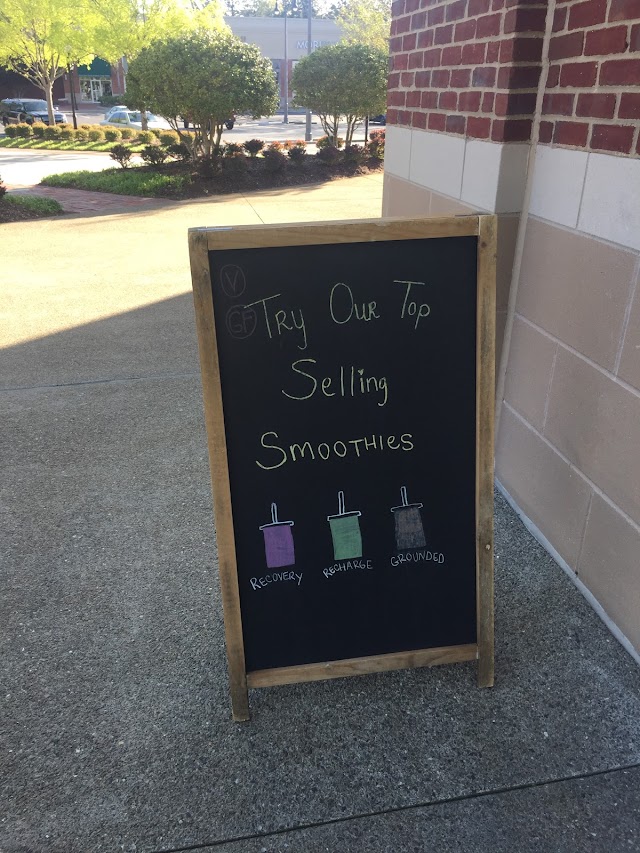 V
GF
Try Our Top
Selling
Smoothies
RECOVERY RECHARGE GROUNDED